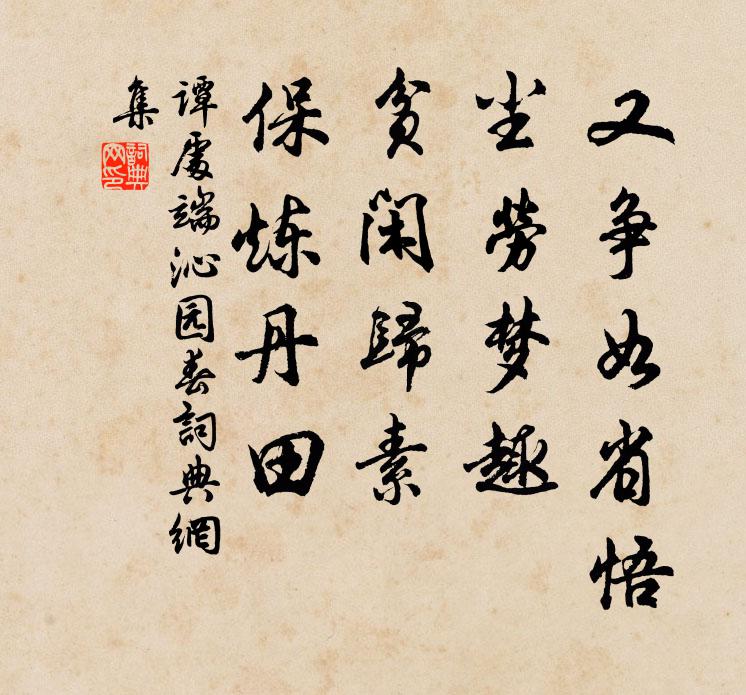 又争如省悟
尘劳梦趣
贫闲归素
保炼丹田
谭處端沁园春詞典網
集
詞典網印